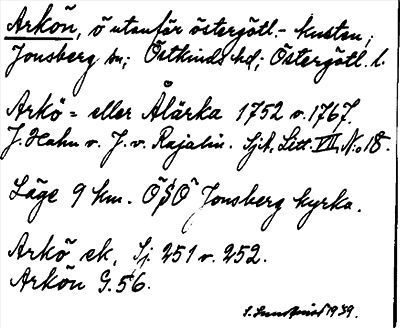 Arkön, ö utanför östergötl.- kusten;
Jonsberg sn; Östkinds hd; Östergötl. l.
Arkö = eller Ålärka 1752 v. 1767.
J. Hahn v. J. v. Rajalin. Sjk. Litt. VII, N:o 18.
Läge 9 km. ÖSÖ Jonsberg kyrka.
Arkö ek, Sj. 251 v. 252.
Arkön G. 56.
1939.